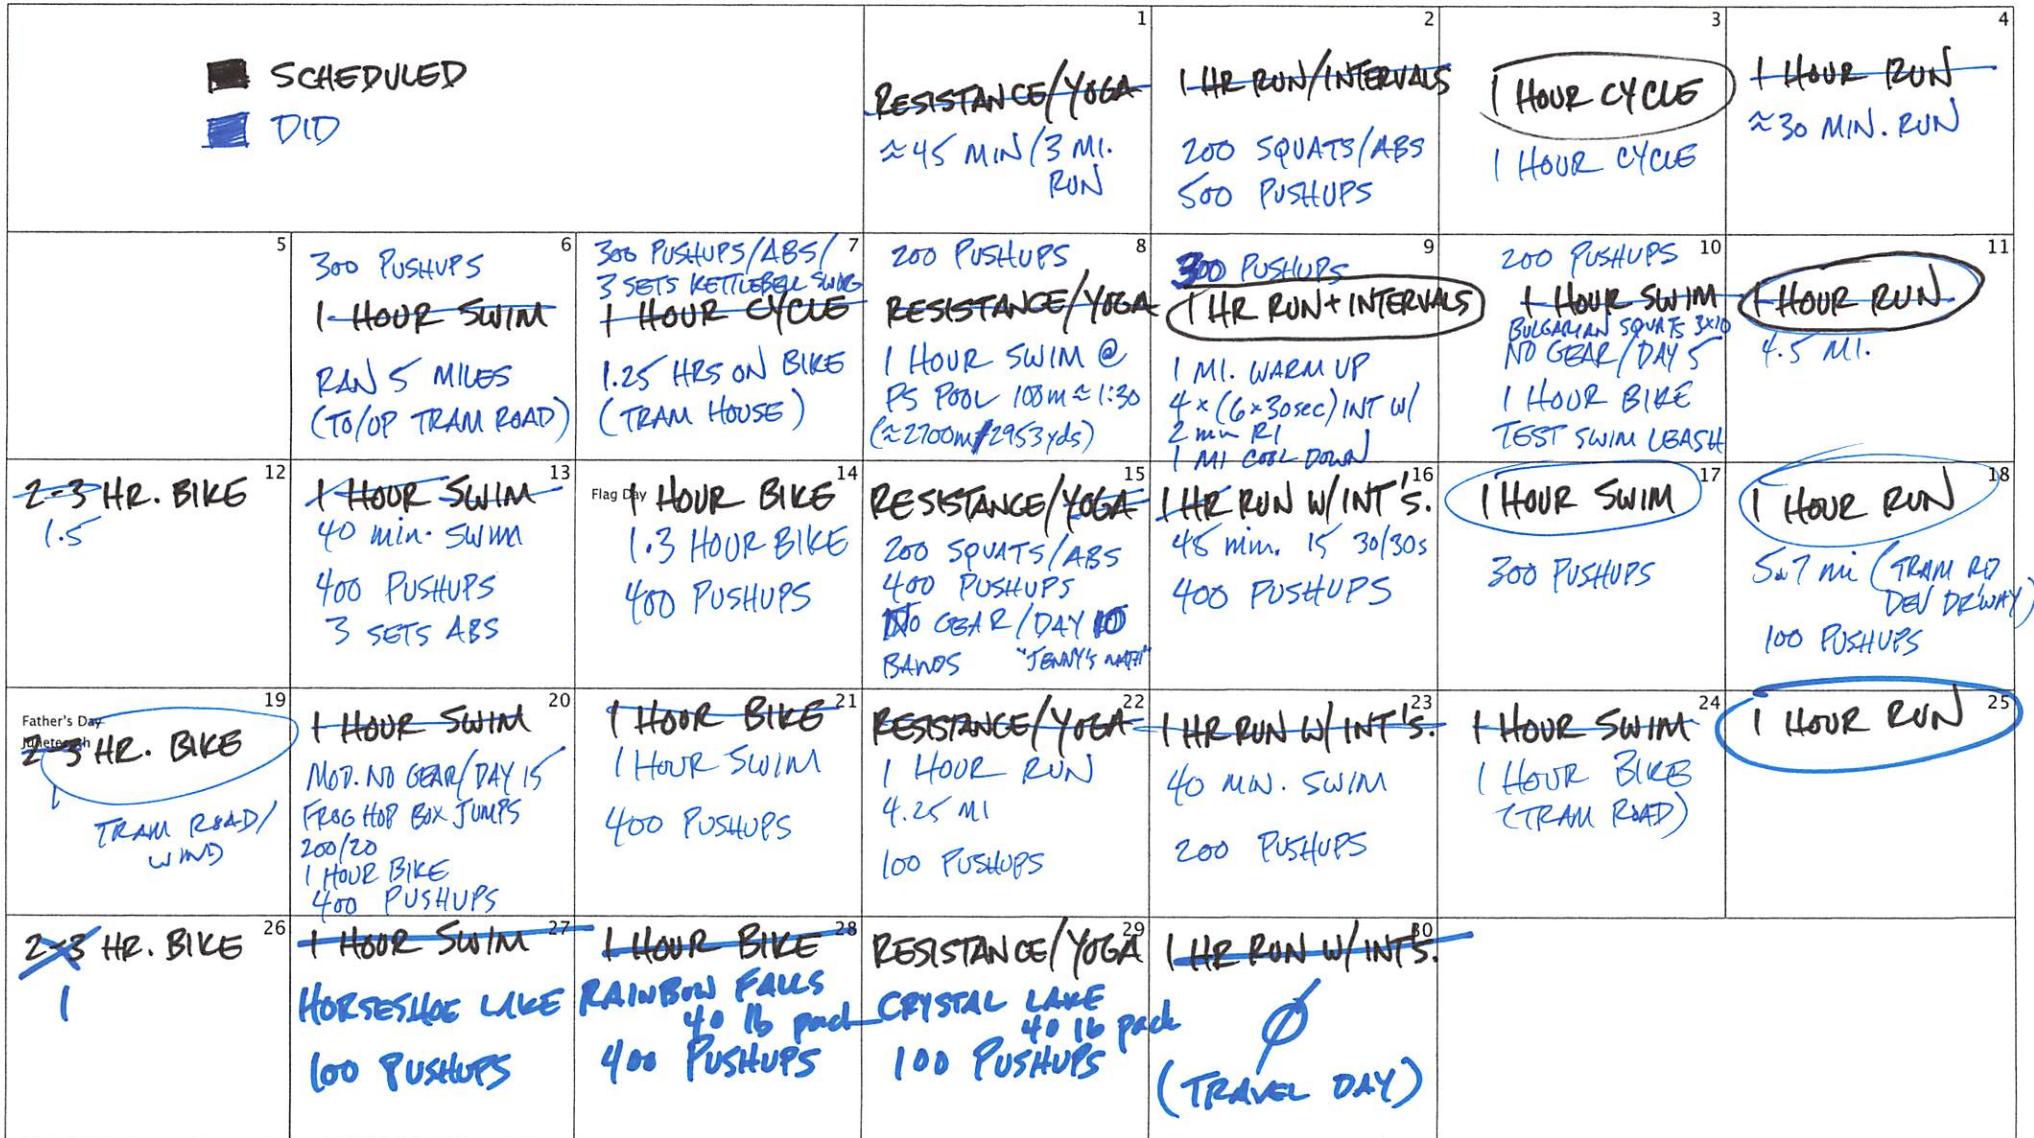 SCHEDULED
DID
1
RESISTANCE/YOGA
≈45 MIN/3 MI.
RUN
2
1 HR RUN/INTERVALS
200 SQUATS/ABS
500 PUSHUPS
3
1 HOUR CYCLE
1 HOUR CYCLE
4
1 HOUR RUN
≈30 MIN. RUN
5
6
300 PUSHUPS
1 HOUR SWIM
RAN 5 MILES
(TO/UP TRAM ROAD)
7
300 PUSHUPS/ABS/
3 SETS KETTLEBELL SWING
1 HOUR CYCLE
1.25 HRS ON BIKE
(TRAM HOUSE)
8
200 PUSHUPS
RESISTANCE/YOGA
1 HOUR SWIM @
PS POOL 100m ≈ 1:30
(≈2700m/2953yds)
9
300 PUSHUPS
1 HR RUN + INTERVALS
1 MI. WARM UP
4 × (6×30sec) INT W/
2 min RI
1 MI COOL DOWN
10
200 PUSHUPS
1 HOUR SWIM
BULGARIAN SQUATS 3X10
NO GEAR/DAY 5
1 HOUR BIKE
TEST SWIM LEASH
11
1 HOUR RUN
4.5 MI.
12
2-3 HR. BIKE
1.5
13
1 HOUR SWIM
40 min. SWIM
400 PUSHUPS
3 SETS ABS
14
Flag Day
1 HOUR BIKE
1.3 HOUR BIKE
400 PUSHUPS
15
RESISTANCE/YOGA
200 SQUATS/ABS
400 PUSHUPS
NO GEAR/DAY 10
BANDS "JENNY'S MATH"
16
1 HR RUN W/INT'S.
45 min. 15 30/30s
400 PUSHUPS
17
1 HOUR SWIM
300 PUSHUPS
18
1 HOUR RUN
5.7 mi (TRAM RD
DEV DRWAY)
100 PUSHUPS
19
Father's Day
Juneteenth
2-3 HR. BIKE
TRAM ROAD/
WIND
20
1 HOUR SWIM
MOD. NO GEAR/DAY 15
FROG HOP BOX JUMPS
200/20
1 HOUR BIKE
400 PUSHUPS
21
1 HOUR BIKE
1 HOUR SWIM
400 PUSHUPS
22
RESISTANCE/YOGA
1 HOUR RUN
4.25 MI
100 PUSHUPS
23
1 HR RUN W/ INT'S.
40 MIN. SWIM
200 PUSHUPS
24
1 HOUR SWIM
1 HOUR BIKE
(TRAM ROAD)
25
1 HOUR RUN
26
2-3 HR. BIKE
1
27
1 HOUR SWIM
HORSESHOE LAKE
100 PUSHUPS
28
1 HOUR BIKE
RAINBOW FALLS
40 lb pack
400 PUSHUPS
29
RESISTANCE/YOGA
CRYSTAL LAKE
40 lb pack
100 PUSHUPS
30
1 HR RUN W/ INT'S.
Ø
(TRAVEL DAY)